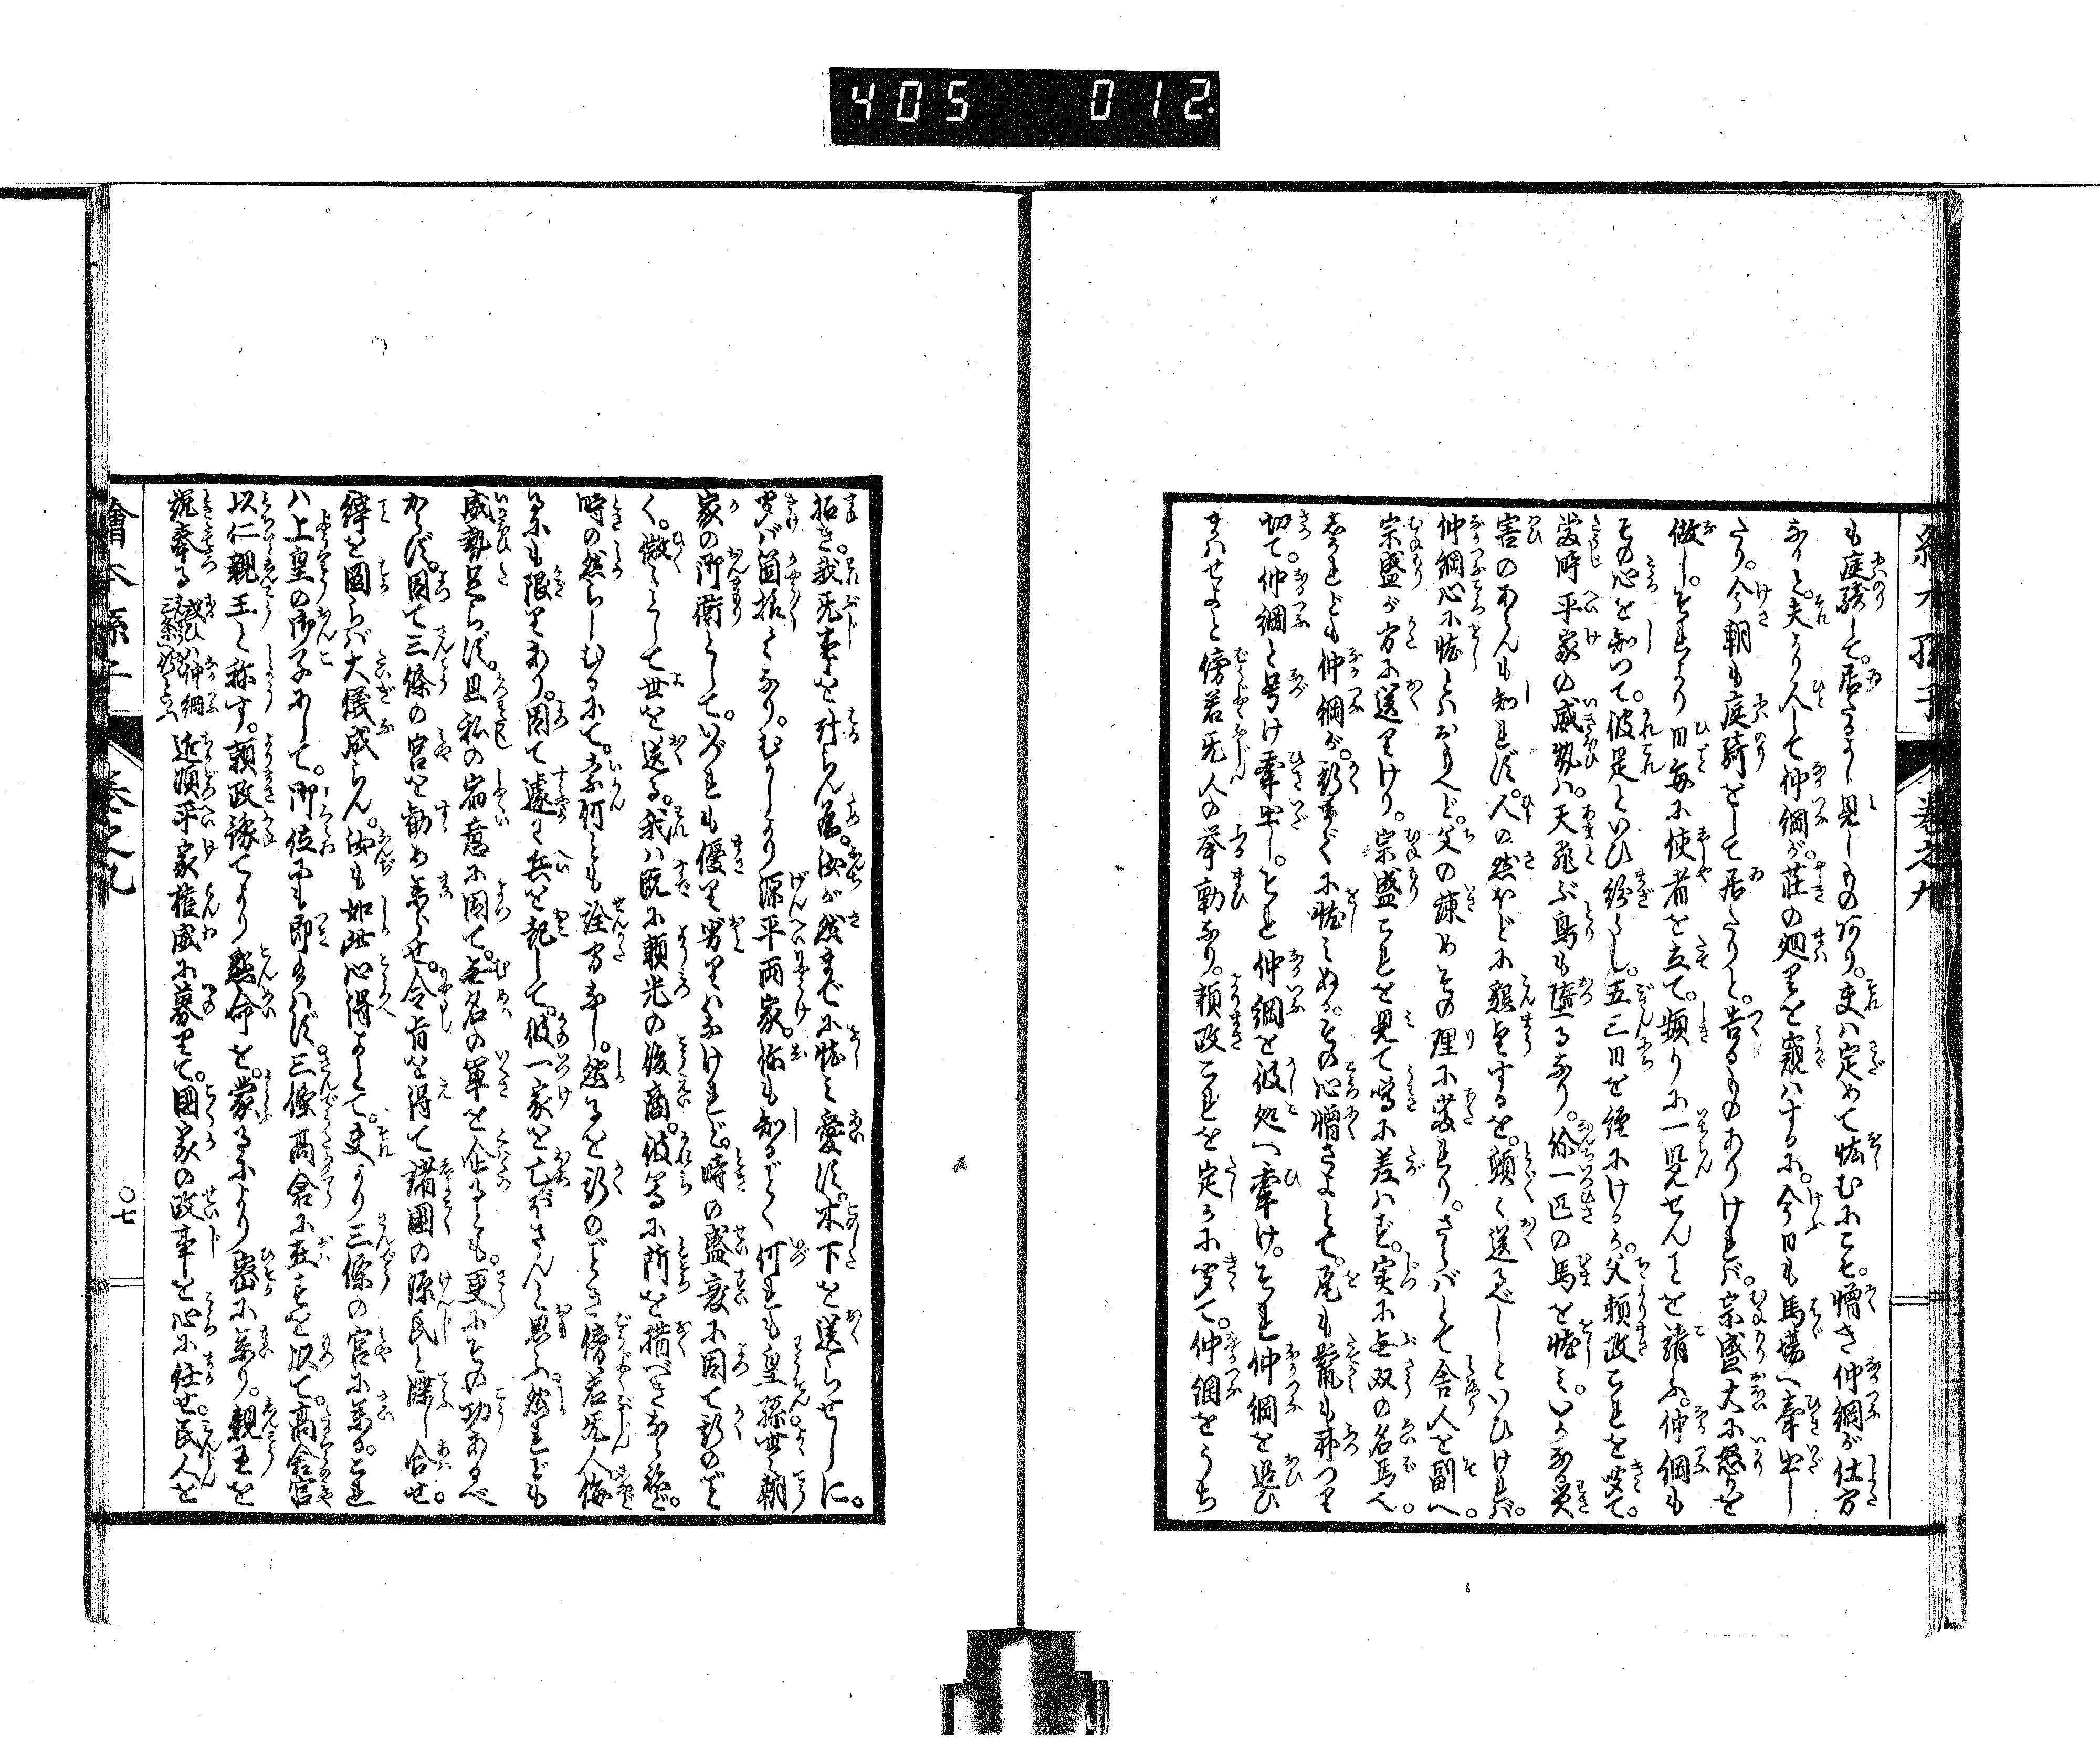 405 012.
絵本孫子 巻之九
も庭騎して。居たるよし見しものあり。夫は定めて恡むにこそ。憎き仲綱が仕方
なりと。夫より人して仲綱が。荘の廻りを窺はするに。今日も馬場へ牽出し
たり。今朝も庭騎をして居たりと。告るものありければ。宗盛大に怒りを
做し。それより日毎に使者を立て。頻りに一覧せんことを請ふ。仲綱も
その心を知つて。彼是といひ紛らし。五三日を経にけるが。父頼政これを聞て。
当時平家の威勢は。天飛ぶ鳥も墮るなり。徐一匹の馬を恡み。いかなる災
害のあらんも知れず。人の然ほどに懇望するを。頭く送るべしといひければ。
仲綱心に恡とはおもへど。父の諫めその理に当れり。さらばとて舎人を副へ。
宗盛が方に送りけり。宗盛これを見て噂に差はず。実に無双の名馬也。
しかれども仲綱が。斯まで に恡みぬる。その心憎さよとて。尾も鬣も剪つて
切て。仲綱と号け牽出し。それ仲綱を彼処へ牽け。それ仲綱を追ひ
まはせよと傍若無人の挙動なり。頼政これを定かに聞て。仲綱をうち
招き。我無事を計らん為。汝が然までに恡み愛す。木下を送らせしに。
聞ば箇様となり。むかしより源平両家。你も知るごとく何れも皇孫世々朝
家の御衛として。いづれも優り劣りはなけれど。時の盛衰に因て斯のごと
く。微々として世を送る。我は既に頼光の後裔。彼等に所を措べきならねど。
時の然らしむるにて。奈何とも詮方なし。然るを斯のごとき傍若無人。侮
るにも限りあり。因て遽に兵を起して。彼一家を亡ぼさんと思ふ。然れども
威勢足らず。且私の宿意に因て。無名の軍を企るとも。更にその功あるべ
からず。因て三條の宮を勧め参らせ。令旨を得て諸國の源氏と牒し合せ。
縡を図らば大儀成らん。汝も如此心得よとて。夫より三條の宮に参る。これ
ハ上皇の御子にして。御位にも即玉はず。三條高倉に在すを以て。高倉宮
以仁親王と称す。頼政豫てより懇命を。蒙るにより密に参り。親王を
説奉る 或ひは仲綱三条へ行と云 近頃平家権威に募りて。國家の政事を心に任せ。民人を
繪本孫子 巻之九 〇七